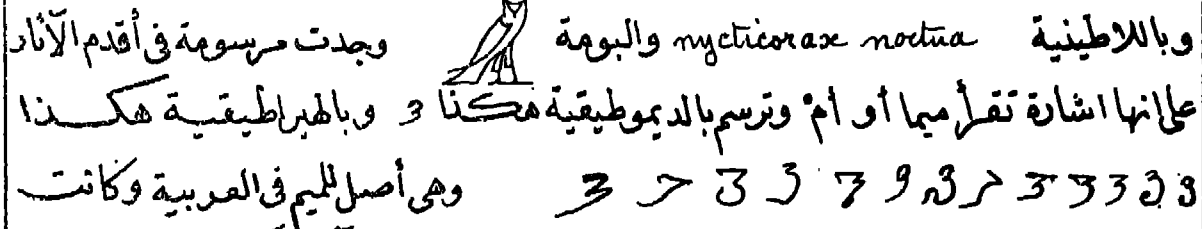 وباللاطينية nycticorax noctua والبومة 𓅓 وجدت مرسومة في أقدم الآثار
على انها اشارة تقرأ ميما أو أم وترسم بالديموطيقية هكذا 3 وبالهيراطيقية هكـــذا
وهى أصل للميم في العربية وكانت